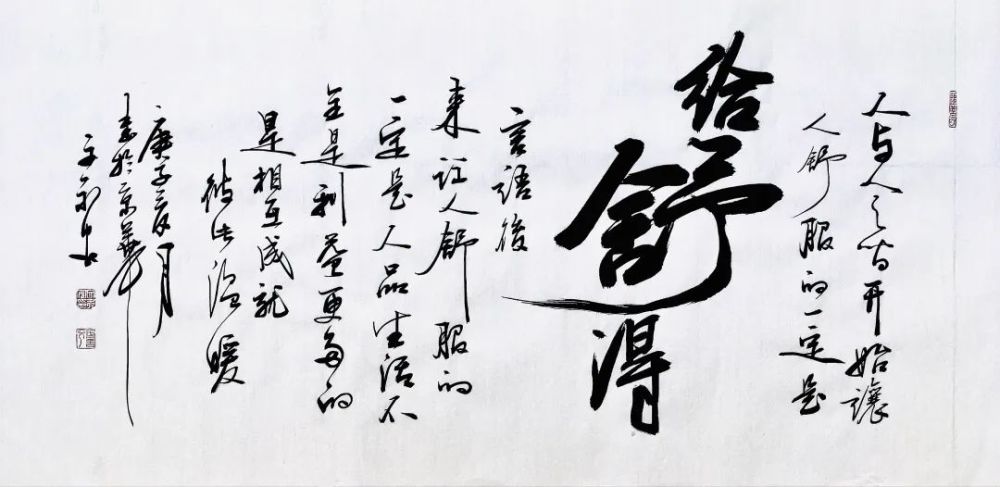 人与人之间开始讓
人舒服的一定是
给舒得
言語後
来让人舒服的
一定是人品生活不
全是利益更多的
是相互成就
彼此温暖
庚子夏月
书於京華